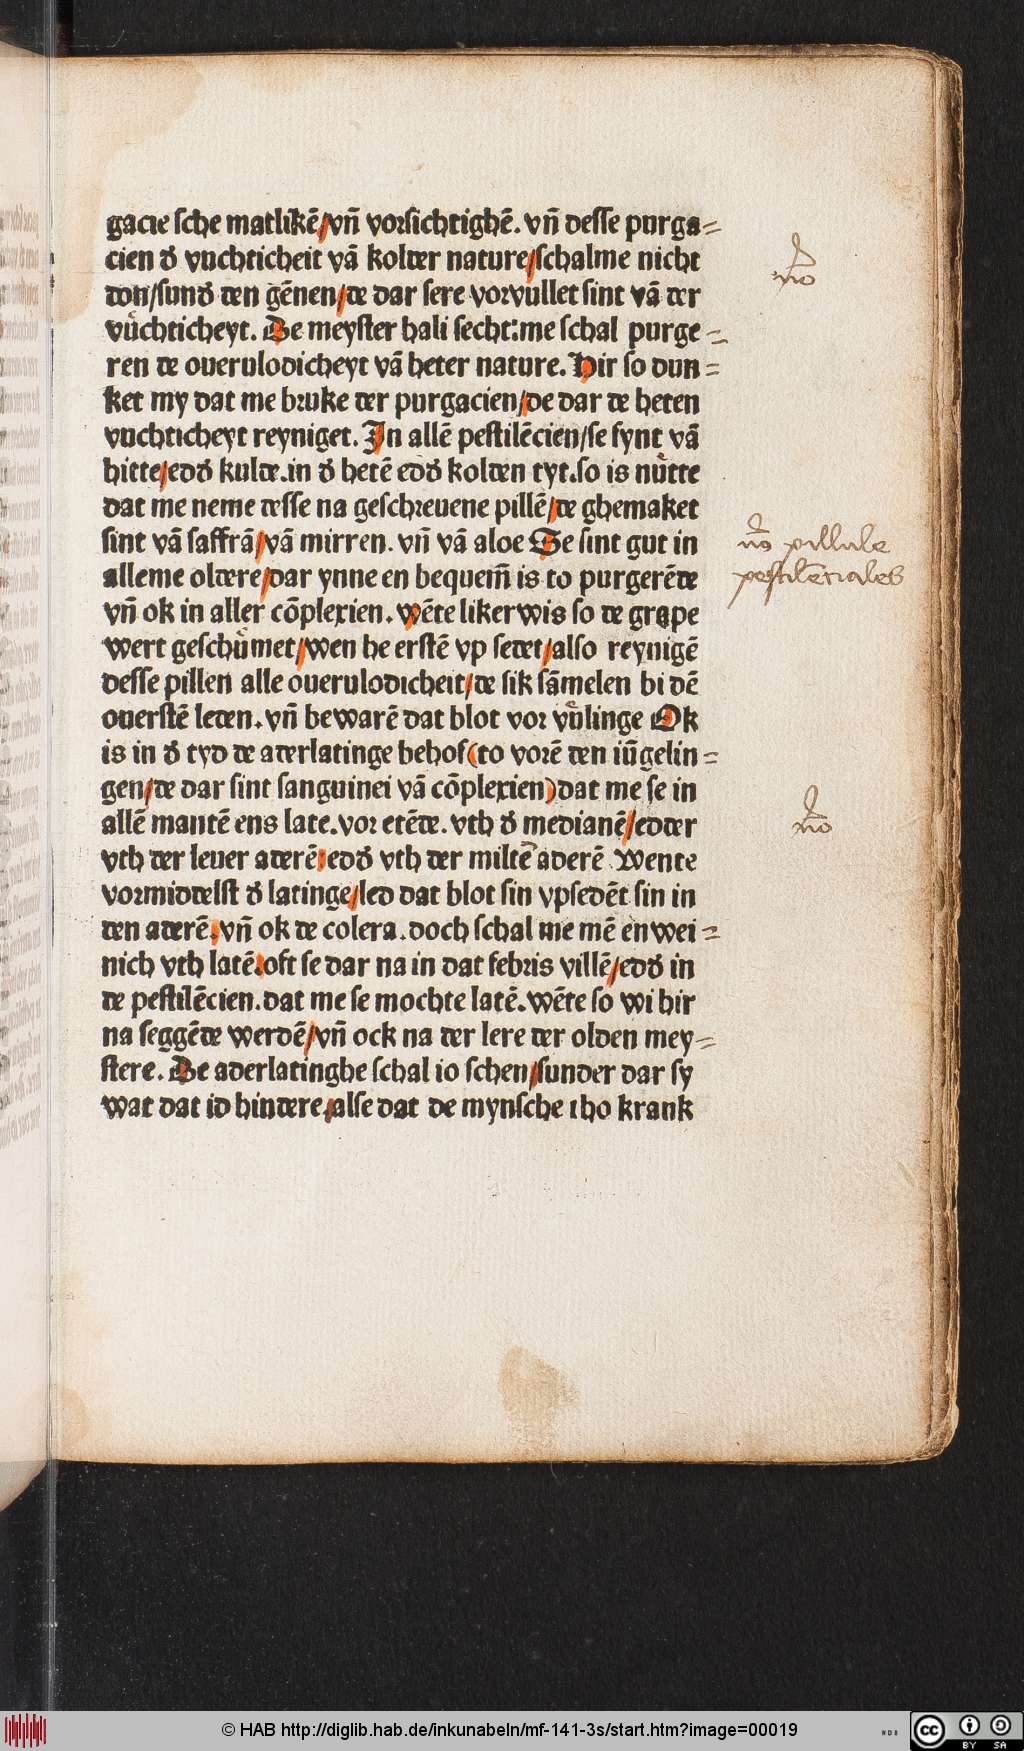 gacie sche matlikē/vn̄ vorsichtighē. vn̄ desse purga=
cien đ vuchticheit vā kolder nature/schalme nicht
don/sunđ den gēnen/de dar sere vorvullet sint vā der
vuͤchticheyt. De meyster hali secht:me schal purge=
ren de ouerulodicheyt vā heter nature. Hir so dun=
ket my dat me bruke der purgacien/de dar de heten
vuchticheyt reyniget. In allē pestilēcien/se synt vā
hitte/edđ kulde.in đ hetē edđ kolden tyt.so is nuͤtte
dat me neme desse na geschreuene pillē/de ghemaket
sint vā saffrā/vā mirren. vn̄ vā aloe Se sint gut in
alleme oldere/dar ynne en bequem̄ is to purgerēde
vn̄ ok in aller cōplexien. wēte likerwis so de grape
wert geschuͤmet/wen he erstē vp sedet/also reynigē
desse pillen alle ouerulodicheit/de sik sāmelen bi dē
ouerstē leden. vn̄ bewarē dat blot vor vuͤlinge Ok
is in đ tyd de aderlatinge behof(to vorē den iūgelin=
gen/de dar sint sanguinei vā cōplexien)dat me se in
allē mantē ens late.vor etēde. vth đ medianē/edder
vth der leuer aderē:edđ vth der miltē aderē Wente
vormiddelst đ latinge/led dat blot sin vpsedēt sin in
den aderē.vn̄ ok de colera.doch schal me mē en wei=
nich vth latē.oft se dar na in dat febris villē/edđ in
de pestilēcien.dat me se mochte latē.wēte so wi hir
na seggēde werdē/vn̄ ock na der lere der olden mey=
stere. De aderlatinghe schal io schen/sunder dar sy
wat dat id hindere/alse dat de mynsche tho krank
no
no pillule
pestilēciales
no
© HAB http://diglib.hab.de/inkunabeln/mf-141-3s/start.htm?image=00019
WDB
cc BY SA